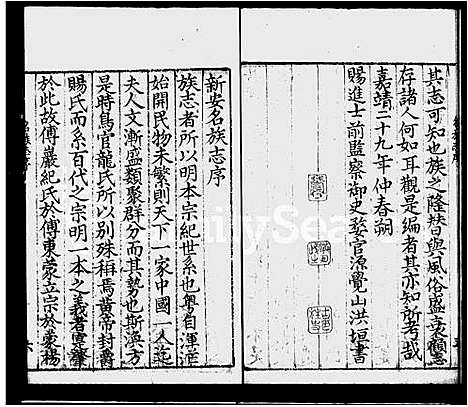 其志可知也族之隆替與風俗盛衰顧
存諸人何如耳觀是編者其亦知所考哉
嘉靖二十九年仲春朔
賜進士前監察御史婺官源覺山洪垣書
新安名族志序
族志者所以明本宗紀世系也粵自渾淪
始開民物未繁則天下一家中國一人迨
夫人文漸盛類聚群分而其勢也斯渙方
是時鳥官龍氏所以別殊稱焉黃帝封爵
賜氏而系百代之宗明一本之義者實肇
於此故傅巖紀氏於傅東蒙立宗於蒙楊